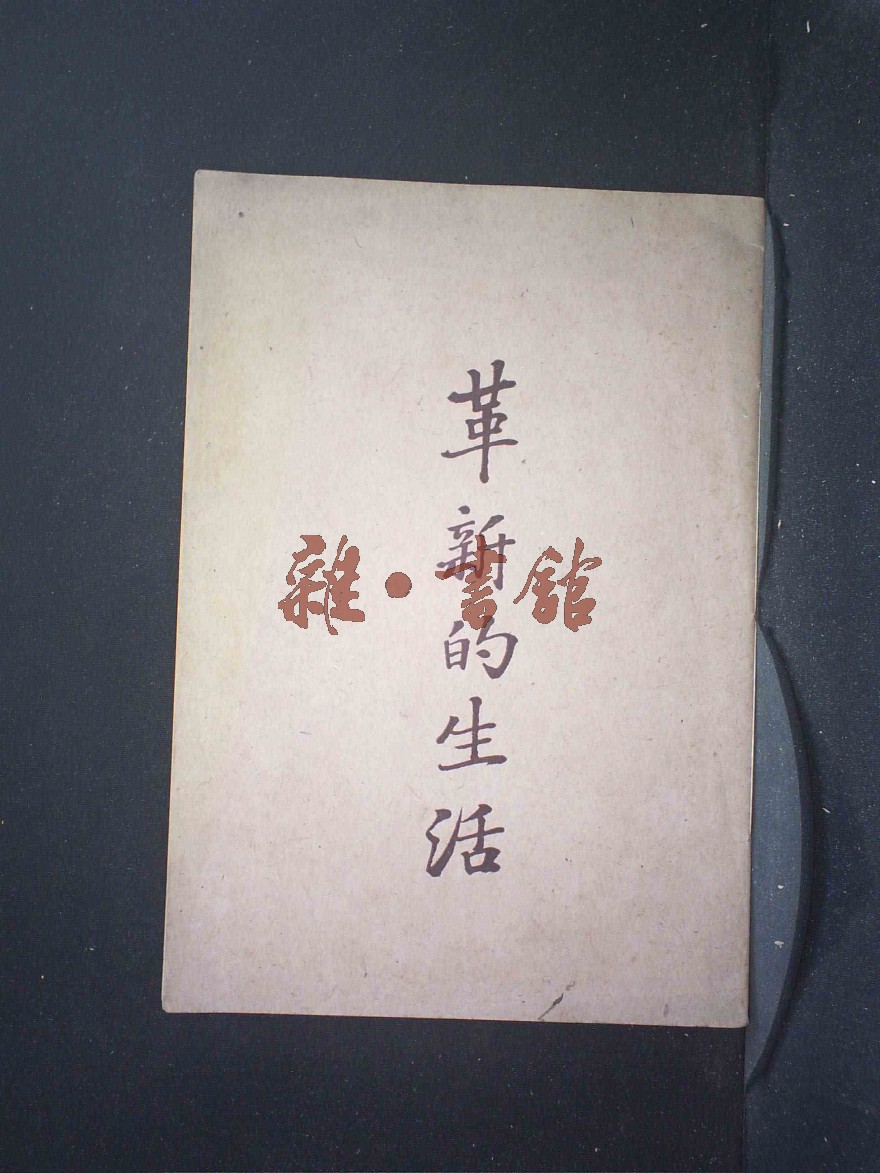 革新的生活
雜·書館